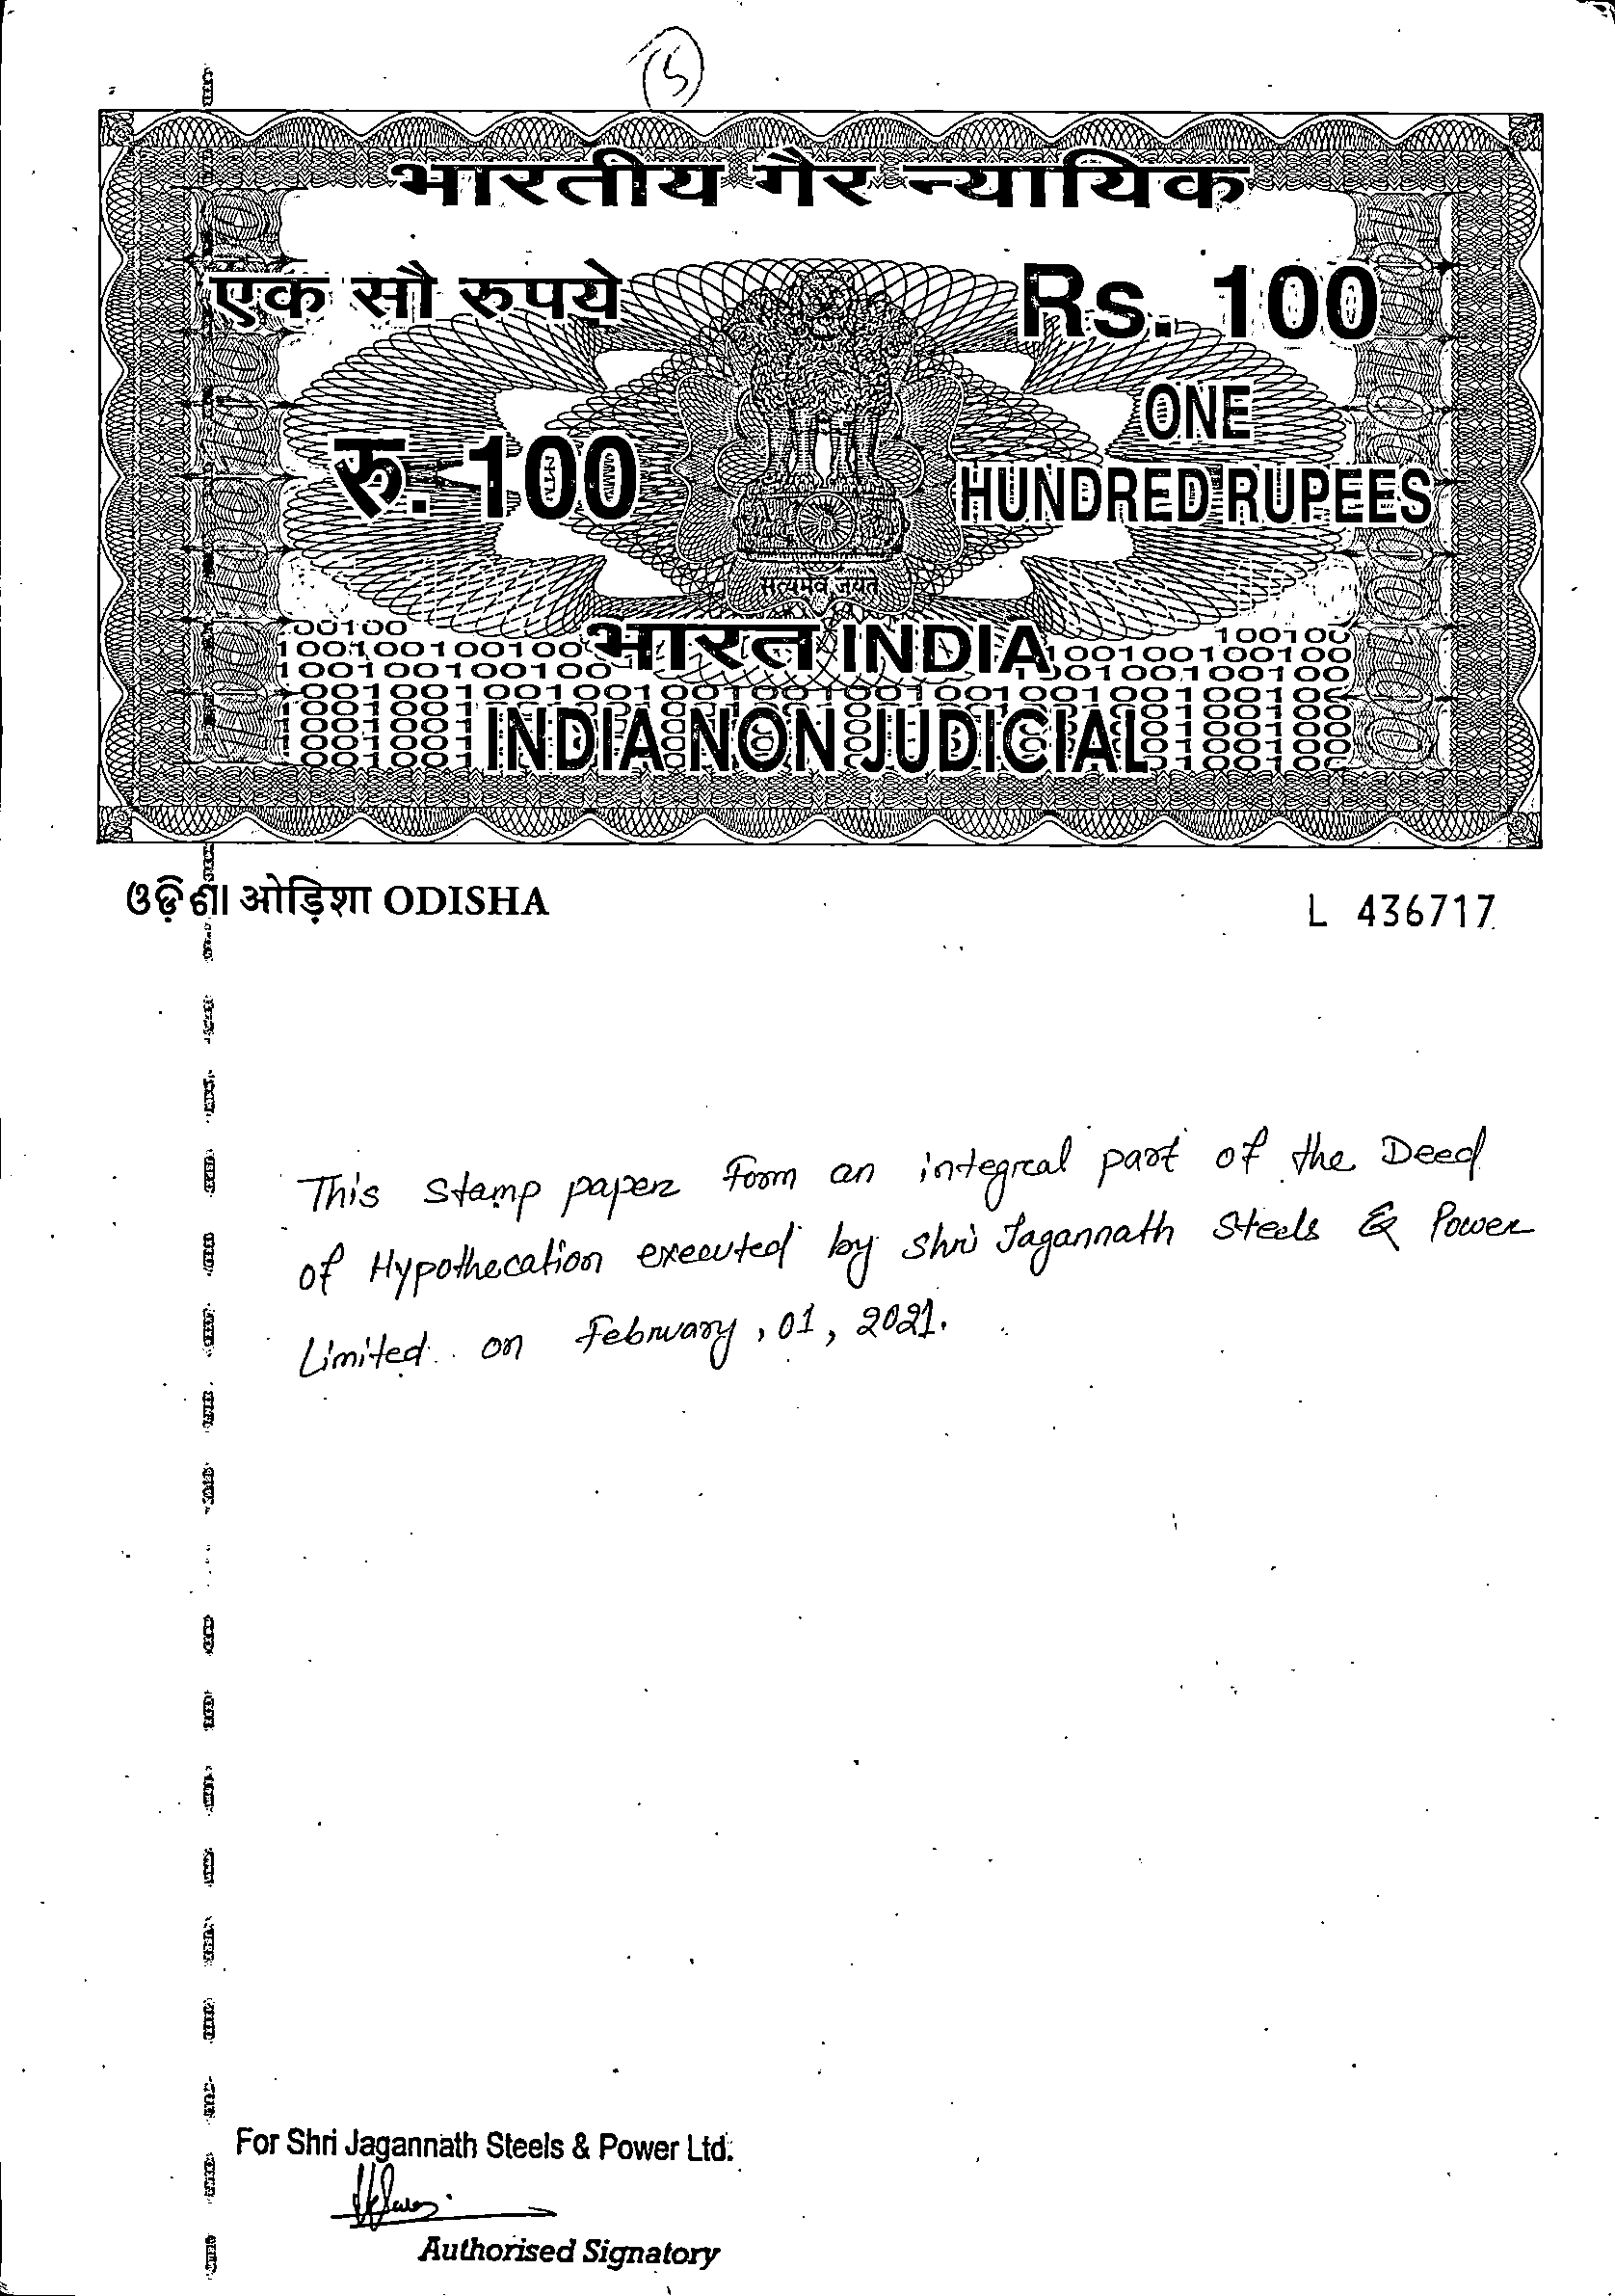 5
भारतीय गैर न्यायिक
एक सौ रुपये
Rs. 100
रु. 100
ONE
HUNDRED RUPEES
सत्यमेव जयते
भारत INDIA
INDIA NON JUDICIAL
ଓଡ଼ିଶା ओड़िशा ODISHA
L 436717
This Stamp paper form an integral part of the Deed
of Hypothecation executed by Shri Jagannath Steels & Power
Limited on February, 01, 2021.
For Shri Jagannath Steels & Power Ltd.
Authorised Signatory